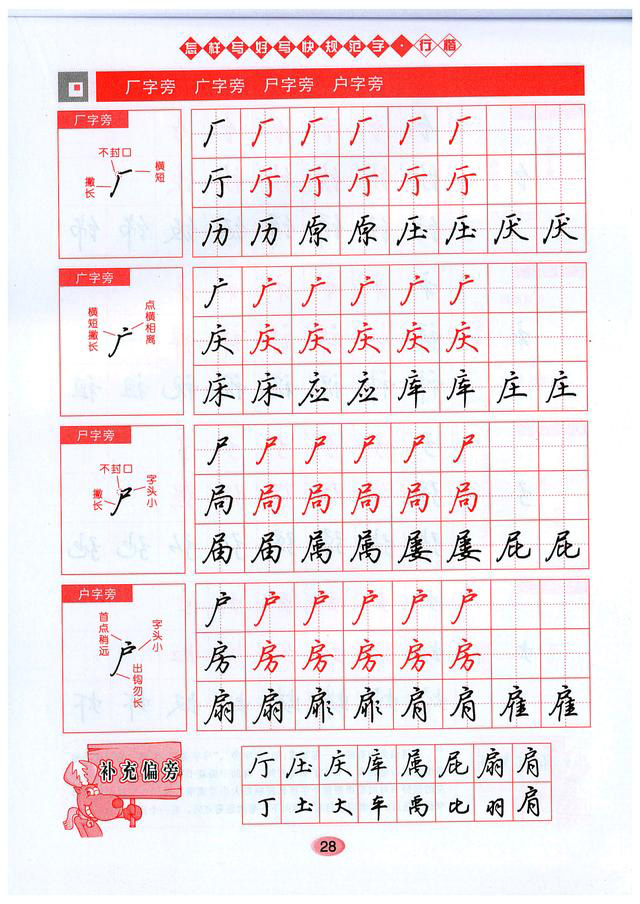 怎样写好写快规范字·行楷
厂字旁 广字旁 尸字旁 户字旁
厂字旁
不封口
横短
撇长
厂
厂 厂 厂 厂 厂 厂
厅 厅 厅 厅 厅 厅
历 历 原 原 压 压 厌 厌
广字旁
点横相离
横短撇长
广
广 广 广 广 广 广
庆 庆 庆 庆 庆 庆
床 床 应 应 库 库 庄 庄
尸字旁
不封口
字头小
撇长
尸
尸 尸 尸 尸 尸 尸
局 局 局 局 局 局
届 届 属 属 屡 屡 屁 屁
户字旁
首点稍远
字头小
出钩勿长
户
户 户 户 户 户 户
房 房 房 房 房 房
扇 扇 扉 扉 肩 肩 雇 雇
补充偏旁
厅 压 庆 库 属 屁 扇 肩
丁 土 大 车 禹 比 羽 肩
28